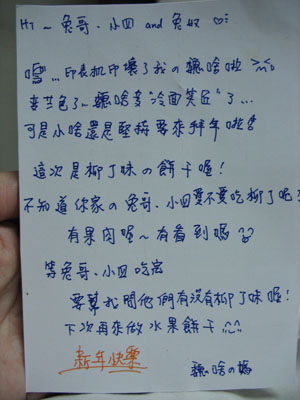 Hi ~ 兔哥、小四 and 兔奴
嘿... 印表机印壞了我の貓啥啦 >"<
变芒色了~ 貓啥變"冷面笑匠"了...
可是小啥還是堅持要來拜年啦
這次是柳丁味の餅干喔!
不知道你家の兔哥、小四愛不愛吃柳丁呢?
有果肉喔~有看到嗎
等兔哥、小四吃完
要幫我問他們有沒有柳丁味喔!
下次再來做水果餅干 ^^
新年快樂
貓啥の媽